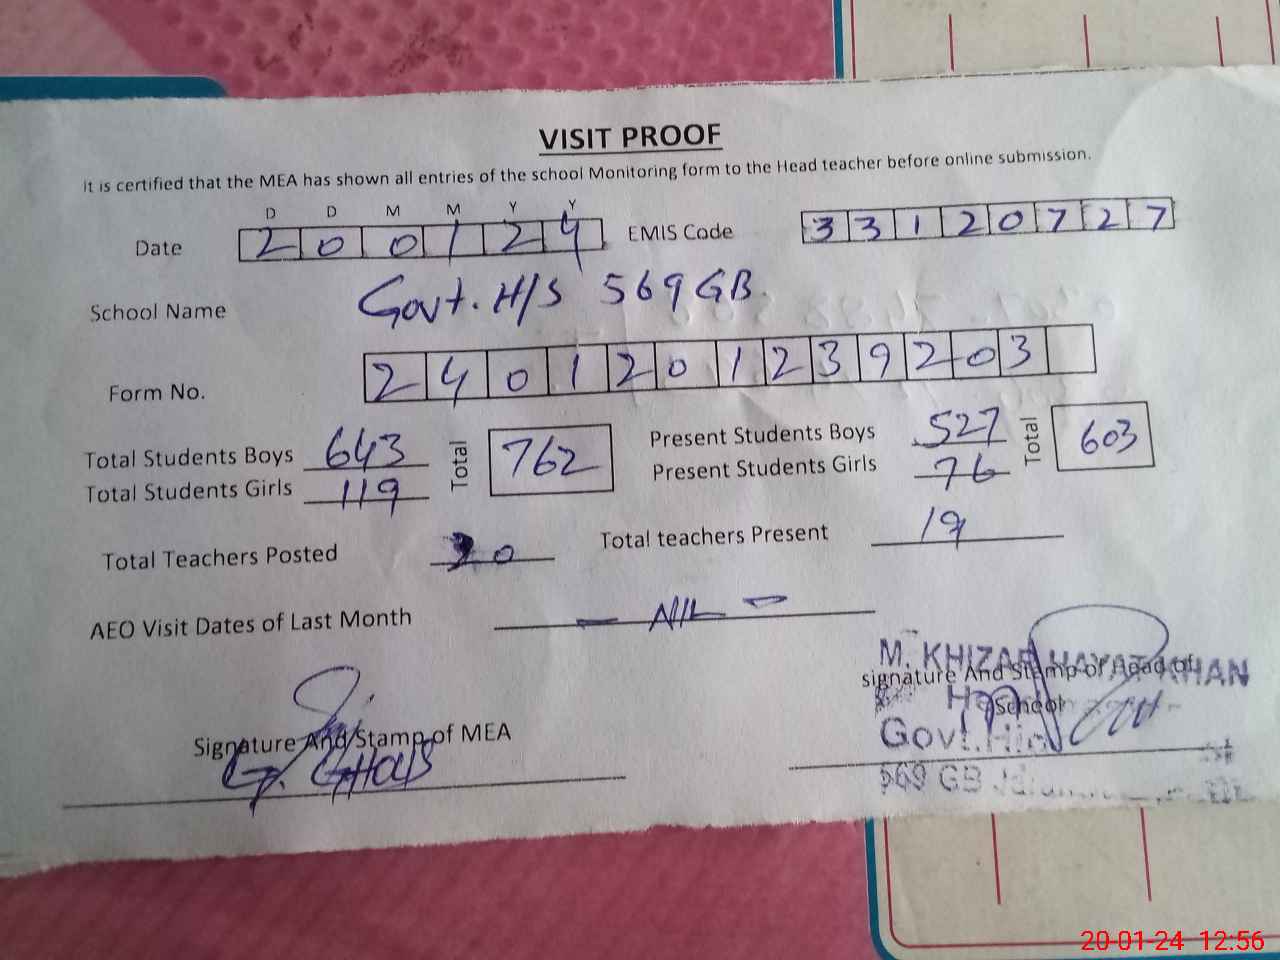 VISIT PROOF
It is certified that the MEA has shown all entries of the school Monitoring form to the Head teacher before online submission.
D D M M Y Y
Date 2 0 0 1 2 4 EMIS Code 3 3 1 2 0 7 2 7
School Name Govt. H/S 569 GB.
Form No. 2 4 0 1 2 0 1 2 3 9 2 0 3
Total Students Boys 643 Total 762 Present Students Boys 527 Total 603
Total Students Girls 119 Present Students Girls 76
Total Teachers Posted 20 Total teachers Present 19
AEO Visit Dates of Last Month - NIL -
M. KHIZAR HAYAT KHAN
signature And Stamp of Head of
School
Signature And Stamp of MEA
G. GHOUS
Govt.
569 GB
20-01-24 12:56